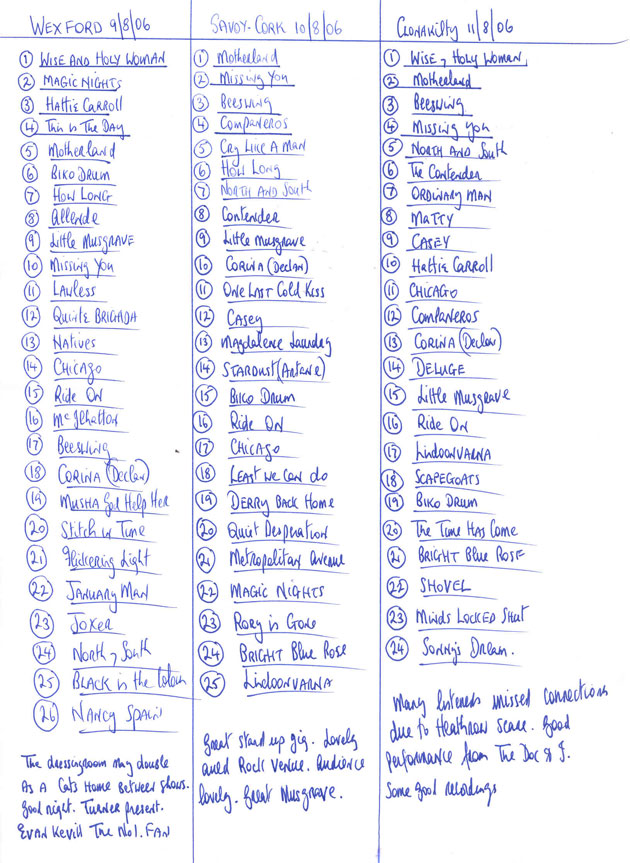 WEXFORD 9/8/06
① WISE AND HOLY WOMAN
② MAGIC NIGHTS
③ HATTIE CARROLL
④ This is The DAY
⑤ Motherland
⑥ BIKO DRUM
⑦ HOW LONG
⑧ Allende
⑨ Little MUSGRAVE
⑩ Missing You
⑪ LAWLESS
⑫ QUINTE BRIGADA
⑬ Natives
⑭ CHICAGO
⑮ Ride On
⑯ McIlhatton
⑰ Beeswing
⑱ CORINA (Declan)
⑲ MUSHA God Help Her
⑳ Stitch in Time
㉑ Flickering Light
㉒ JANUARY MAN
㉓ JOKER
㉔ North & South
㉕ BLACK is the Colour
㉖ NANCY SPAIN
The dressingroom may double
AS A CATS Home BETWEEN shows.
Good night. Turner present.
EVAN KEVILL THE No1. FAN
SAVOY-CORK 10/8/06
① Motherland
② Missing You
③ Beeswing
④ Companeros
⑤ CRY LIKE A MAN
⑥ HOW LONG
⑦ NORTH AND South
⑧ Contender
⑨ Little Musgrave
⑩ CORINA (Declan)
⑪ ONE LAST COLD KISS
⑫ CASEY
⑬ Magdalene Laundry
⑭ STARDUST (Antoine)
⑮ BIKO DRUM
⑯ Ride ON
⑰ CHICAGO
⑱ LEAST WE CAN do
⑲ DERRY BACK Home
⑳ Quiet Desperation
㉑ Metropolitan Avenue
㉒ MAGIC NIGHTS
㉓ RORY is Gone
㉔ BRIGHT BLUE ROSE
㉕ LISDOONVARNA
Great stand up gig. Lovely
aued Rock Venue. Audience
lovely. Great Musgrave.
CLONAKILTY 11/8/06
① WISE & HOLY WOMAN
② Motherland
③ Beeswing
④ Missing You
⑤ NORTH AND South
⑥ The Contender
⑦ ORDINARY MAN
⑧ MATTY
⑨ CASEY
⑩ HATTIE CARROLL
⑪ CHICAGO
⑫ COMPANEROS
⑬ CORINA (Declan)
⑭ DELUGE
⑮ Little Musgrave
⑯ Ride ON
⑰ LISDOONVARNA
⑱ SCAPEGOATS
⑲ BIKO DRUM
⑳ The Time HAS Come
㉑ BRIGHT BLUE ROSE
㉒ SHOVEL
㉓ MINDS LOCKED SHUT
㉔ Sonny's Dream.
Many listeners missed connections
due to Heathrow Scare. Good
performance from The Doc & I.
Some good recordings